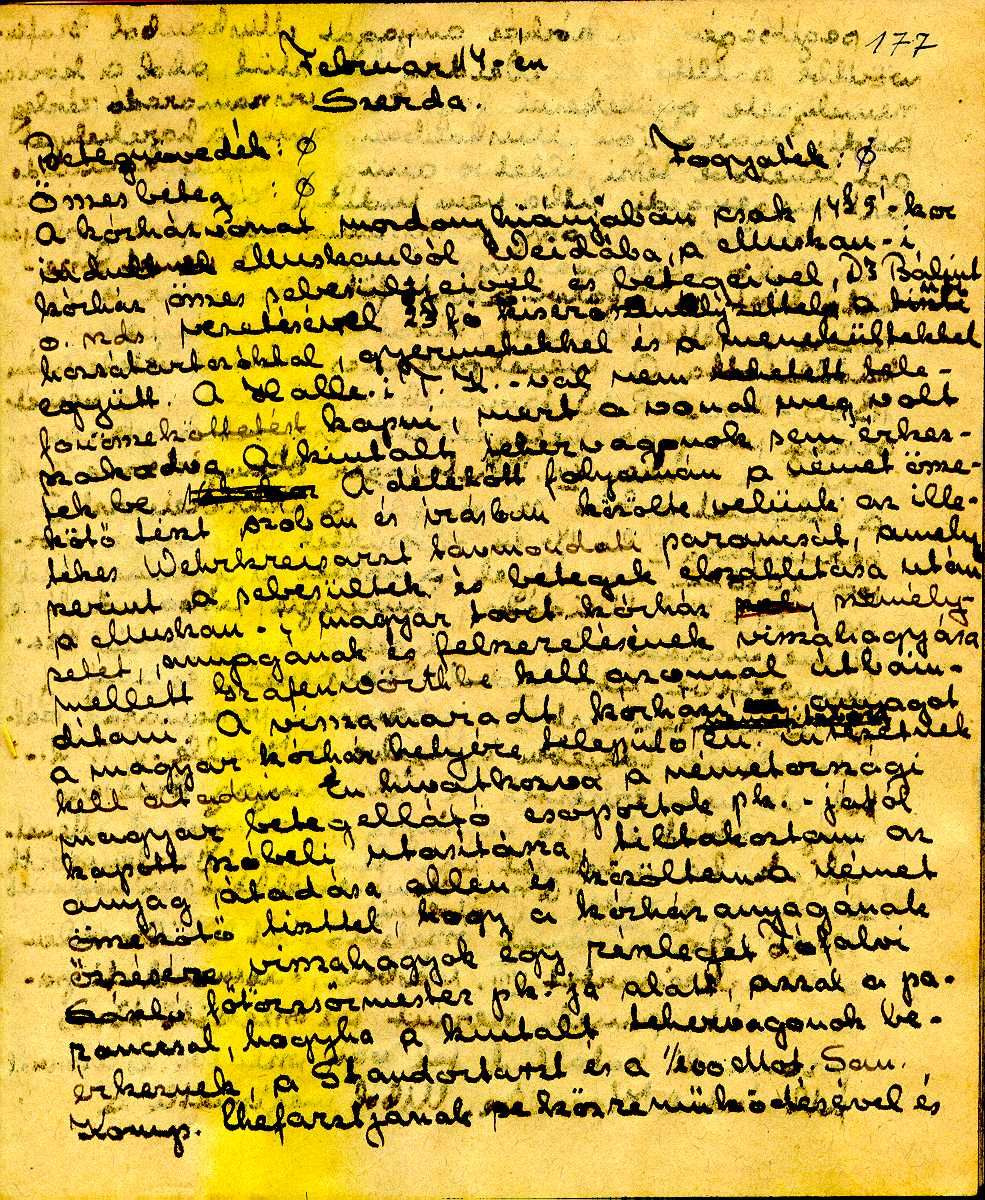 177
Február 14.-én
Szerda.
Betegnövedék: Ø Fogyaték: Ø
Összes beteg : Ø
A kórházvonat mozdony hiányában csak 14 -kor
indult Muskauból Weidába, a Muskau-i
kórház összes sebesültjeivel és betegeivel, Dr Bálint
o. zds. vezetésével 23 fő kisérőszemélyzettel, a tiszti
hozzátartozókkal, gyermekekkel és a menekültekkel
együtt. A Halle-i T. K.-val nem lehetett tele-
fonösszeköttetést kapni, mert a vonal meg volt
szakadva. A kiutalt tehervagonok sem érkez-
tek be A délelőtt folyamán a német össze-
kötő tiszt szóban és írásban közölte velünk az ille-
tékes Wehrkreisarzt távmondati parancsát, amely
szerint a sebesültek és betegek elszállítása után
a Muskau-i magyar tovet kórház személy-
zetét, anyagának és felszerelésének visszahagyása
mellett Grafenwörthbe kell azonnal útbain-
dítani. A visszamaradt kórházi anyagot
a magyar kórház helyére települő én. intézetnek
kell átadni. Én hivatkozva a németországi
magyar betegellátó csoportok pk.-jától
kapott szóbeli utasításra, tiltakoztam az
anyag átadása ellen és közöltem a német
összekötő tiszttel, hogy a kórház anyagának
őrzésére visszahagyok egy részleget Dófalvi
László főtörzsőrmester pk-ja alatt, azzal a pa-
ranccsal, hogyha a kiutalt tehervagonok be-
érkeznek, a Standortarzt és a 1/200 Mot. San.
Komp. Chefarztjának közreműködésével és